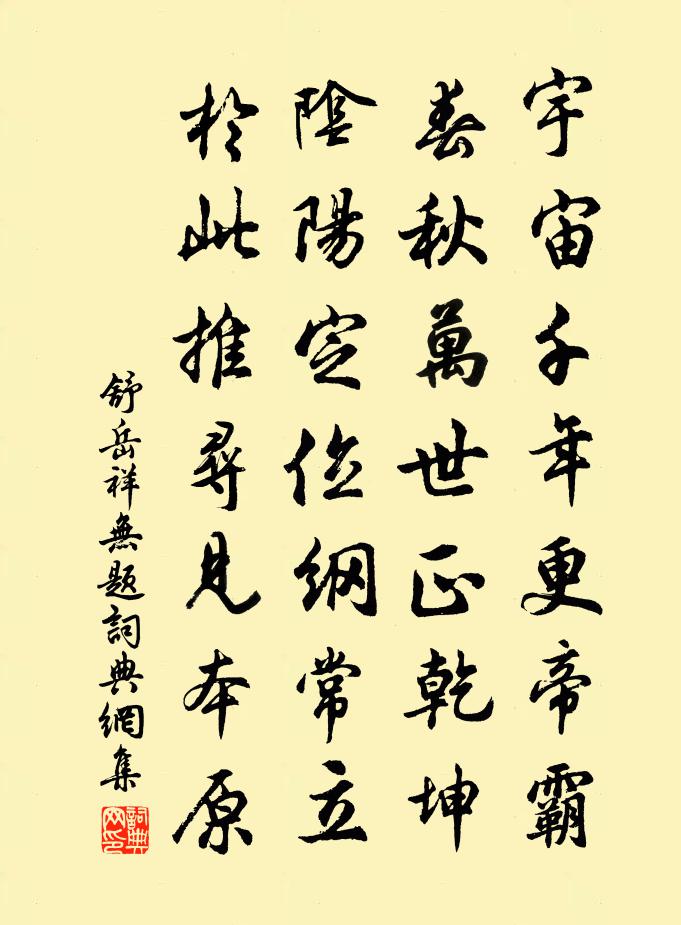 宇宙千年更帝霸
春秋萬世正乾坤
陰陽定位綱常立
於此推尋見本原
舒岳祥無題詞典網集
詞典網印